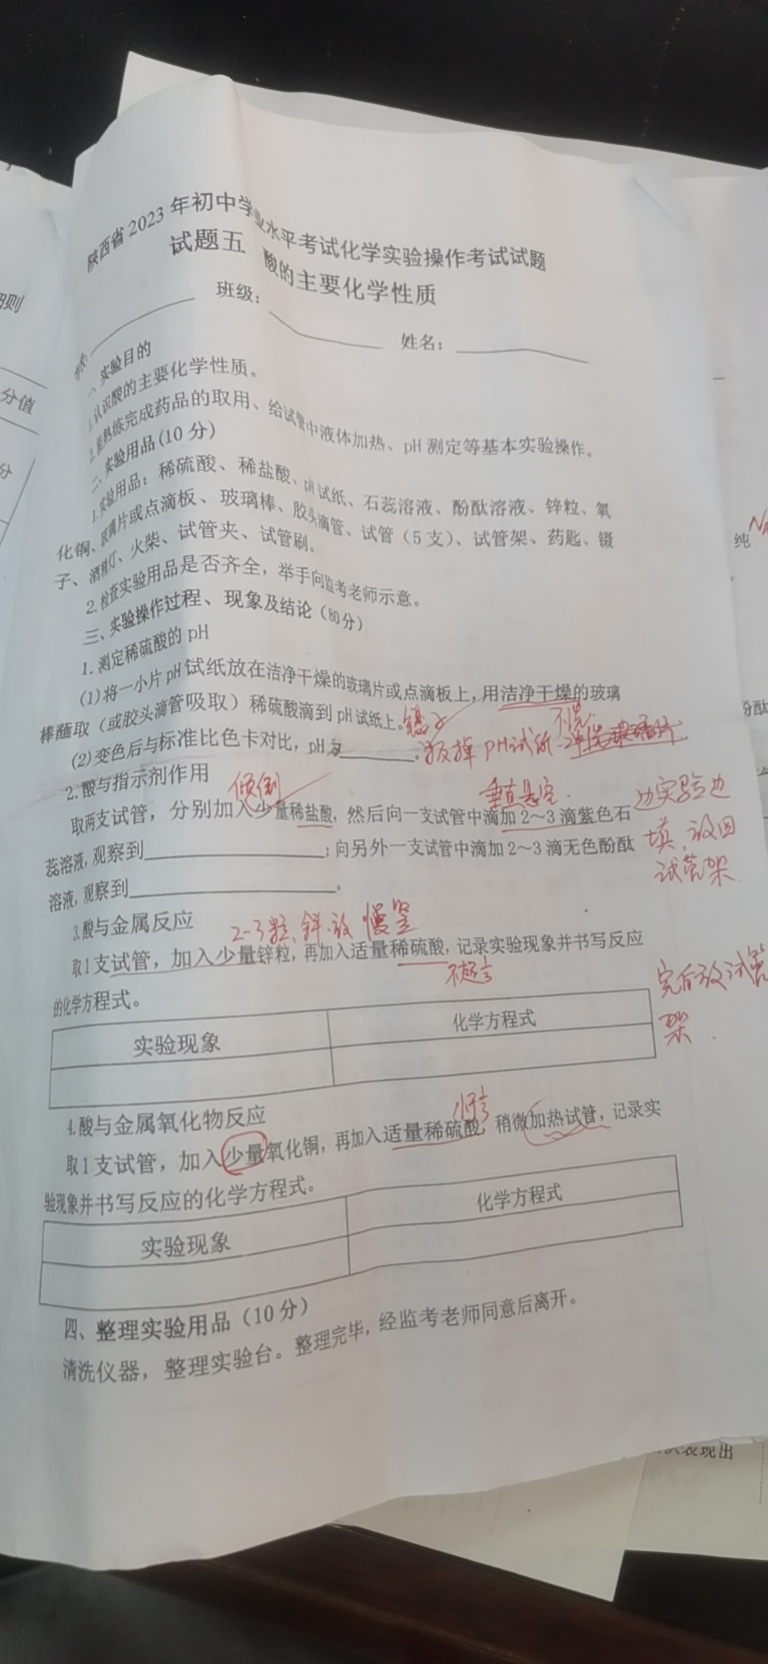 陕西省2023年初中学业水平考试化学实验操作考试试题
试题五 酸的主要化学性质
班级：
姓名：
一、实验目的
1.认识酸的主要化学性质。
2.能熟练完成药品的取用、给试管中液体加热、pH测定等基本实验操作。
二、实验用品(10分)
1.实验用品：稀硫酸、稀盐酸、pH试纸、石蕊溶液、酚酞溶液、锌粒、氧
化铜、玻璃片或点滴板、玻璃棒、胶头滴管、试管（5支）、试管架、药匙、镊
子、酒精灯、火柴、试管夹、试管刷。
2.检查实验用品是否齐全，举手向监考老师示意。
三、实验操作过程、现象及结论(80分)
1.测定稀硫酸的pH
(1)将一小片pH试纸放在洁净干燥的玻璃片或点滴板上，用洁净干燥的玻璃
棒蘸取（或胶头滴管吸取）稀硫酸滴到pH试纸上。
镊子
不洗
(2)变色后与标准比色卡对比，pH为______。
扔掉PH试纸
2.酸与指示剂作用
倾倒
垂直悬空
边实验边
取两支试管，分别加入少量稀盐酸，然后向一支试管中滴加2～3滴紫色石
填，放回
蕊溶液，观察到______；向另外一支试管中滴加2～3滴无色酚酞
试管架
溶液，观察到______。
3.酸与金属反应
2-3粒，斜放 慢竖
取1支试管，加入少量锌粒，再加入适量稀硫酸，记录实验现象并书写反应
完后放试管
的化学方程式。
架.
实验现象
化学方程式
4.酸与金属氧化物反应
取1支试管，加入少量氧化铜，再加入适量稀硫酸，稍微加热试管，记录实
验现象并书写反应的化学方程式。
实验现象
化学方程式
四、整理实验用品（10分）
清洗仪器，整理实验台。整理完毕，经监考老师同意后离开。
细则
分值
分
纯
分酞
表现出